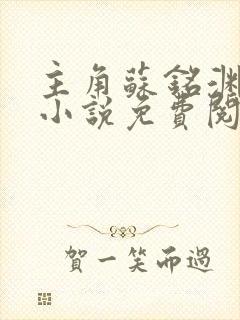 主角蘇銘淵
小說免費閱
賀一笑而過